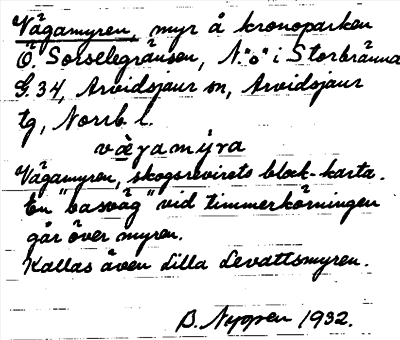 Vägamyren, myr å kronoparken
Ö. Sorselegränsen, N. "ö" i Storbränna
G. 34, Arvidsjaur sn, Arvidsjaur
tg, Norrb. l.
vægamýra
Vägamyren, skogsrevirets block-karta.
En "basväg" vid timmerkörningen
går över myren.
Kallas även Lilla Levattsmyren.
B. Nyppen 1932.